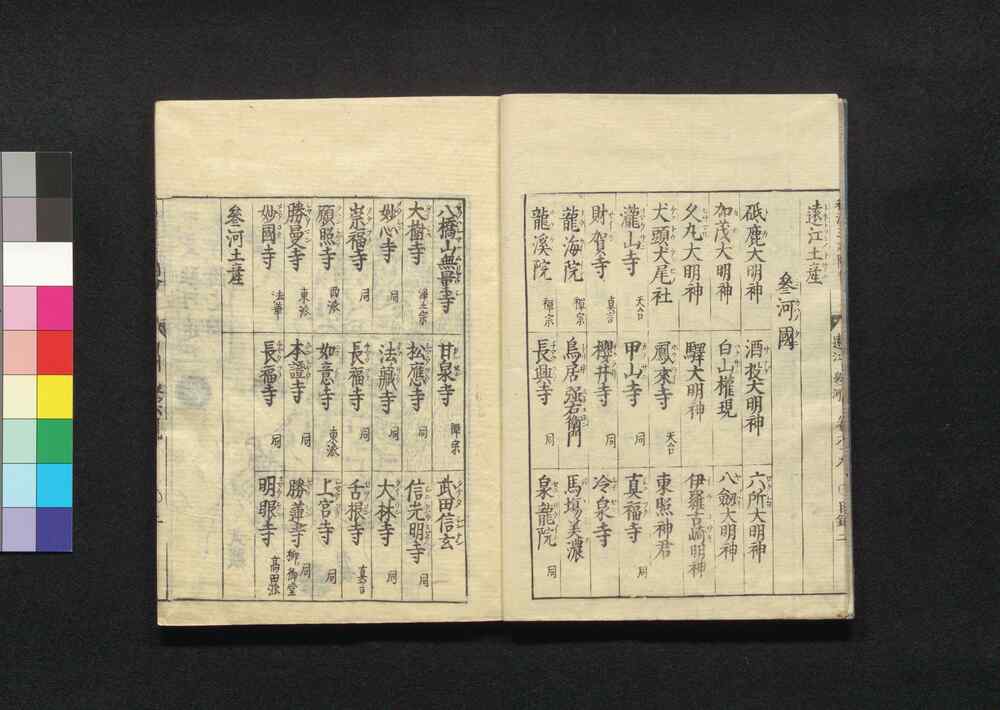 遠江土産
參河國
砥鹿大明神 酒投大明神 六所大明神
加茂大明神 白山權現 八劔大明神
久丸大明神 驛大明神 伊羅古崎明神
犬頭犬尾社 鳳來寺 天台 東照神君
瀧山寺 天台 甲山寺 同 真福寺 同
財賀寺 真言 櫻井寺 同 冷泉寺
龍海院 禪宗 鳥居強右衛門 馬塲美濃
龍溪院 禪宗 長興寺 同 泉龍院 同
八橋山無量寺 甘泉寺 禪宗 武田信玄
大樹寺 淨土宗 松應寺 同 信光明寺 同
妙心寺 同 法藏寺 同 大林寺 同
崇福寺 同 長福寺 同 舌根寺 真言
願照寺 西派 如意寺 東派 上宮寺 同
勝曼寺 東派 本證寺 同 勝蓮寺 同 柳御堂
妙國寺 法華 長福寺 同 明眼寺 高田派
參河土産